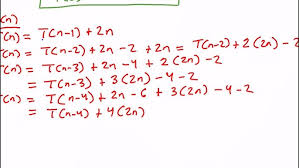 T(n)
T(n) = T(n-1) + 2n
T(n) = T(n-2) + 2n - 2 + 2n = T(n-2) + 2(2n) - 2
T(n) = T(n-3) + 2n - 4 + 2(2n) - 2
= T(n-3) + 3(2n) - 4 - 2
T(n) = T(n-4) + 2n - 6 + 3(2n) - 4 - 2
= T(n-4) + 4(2n)